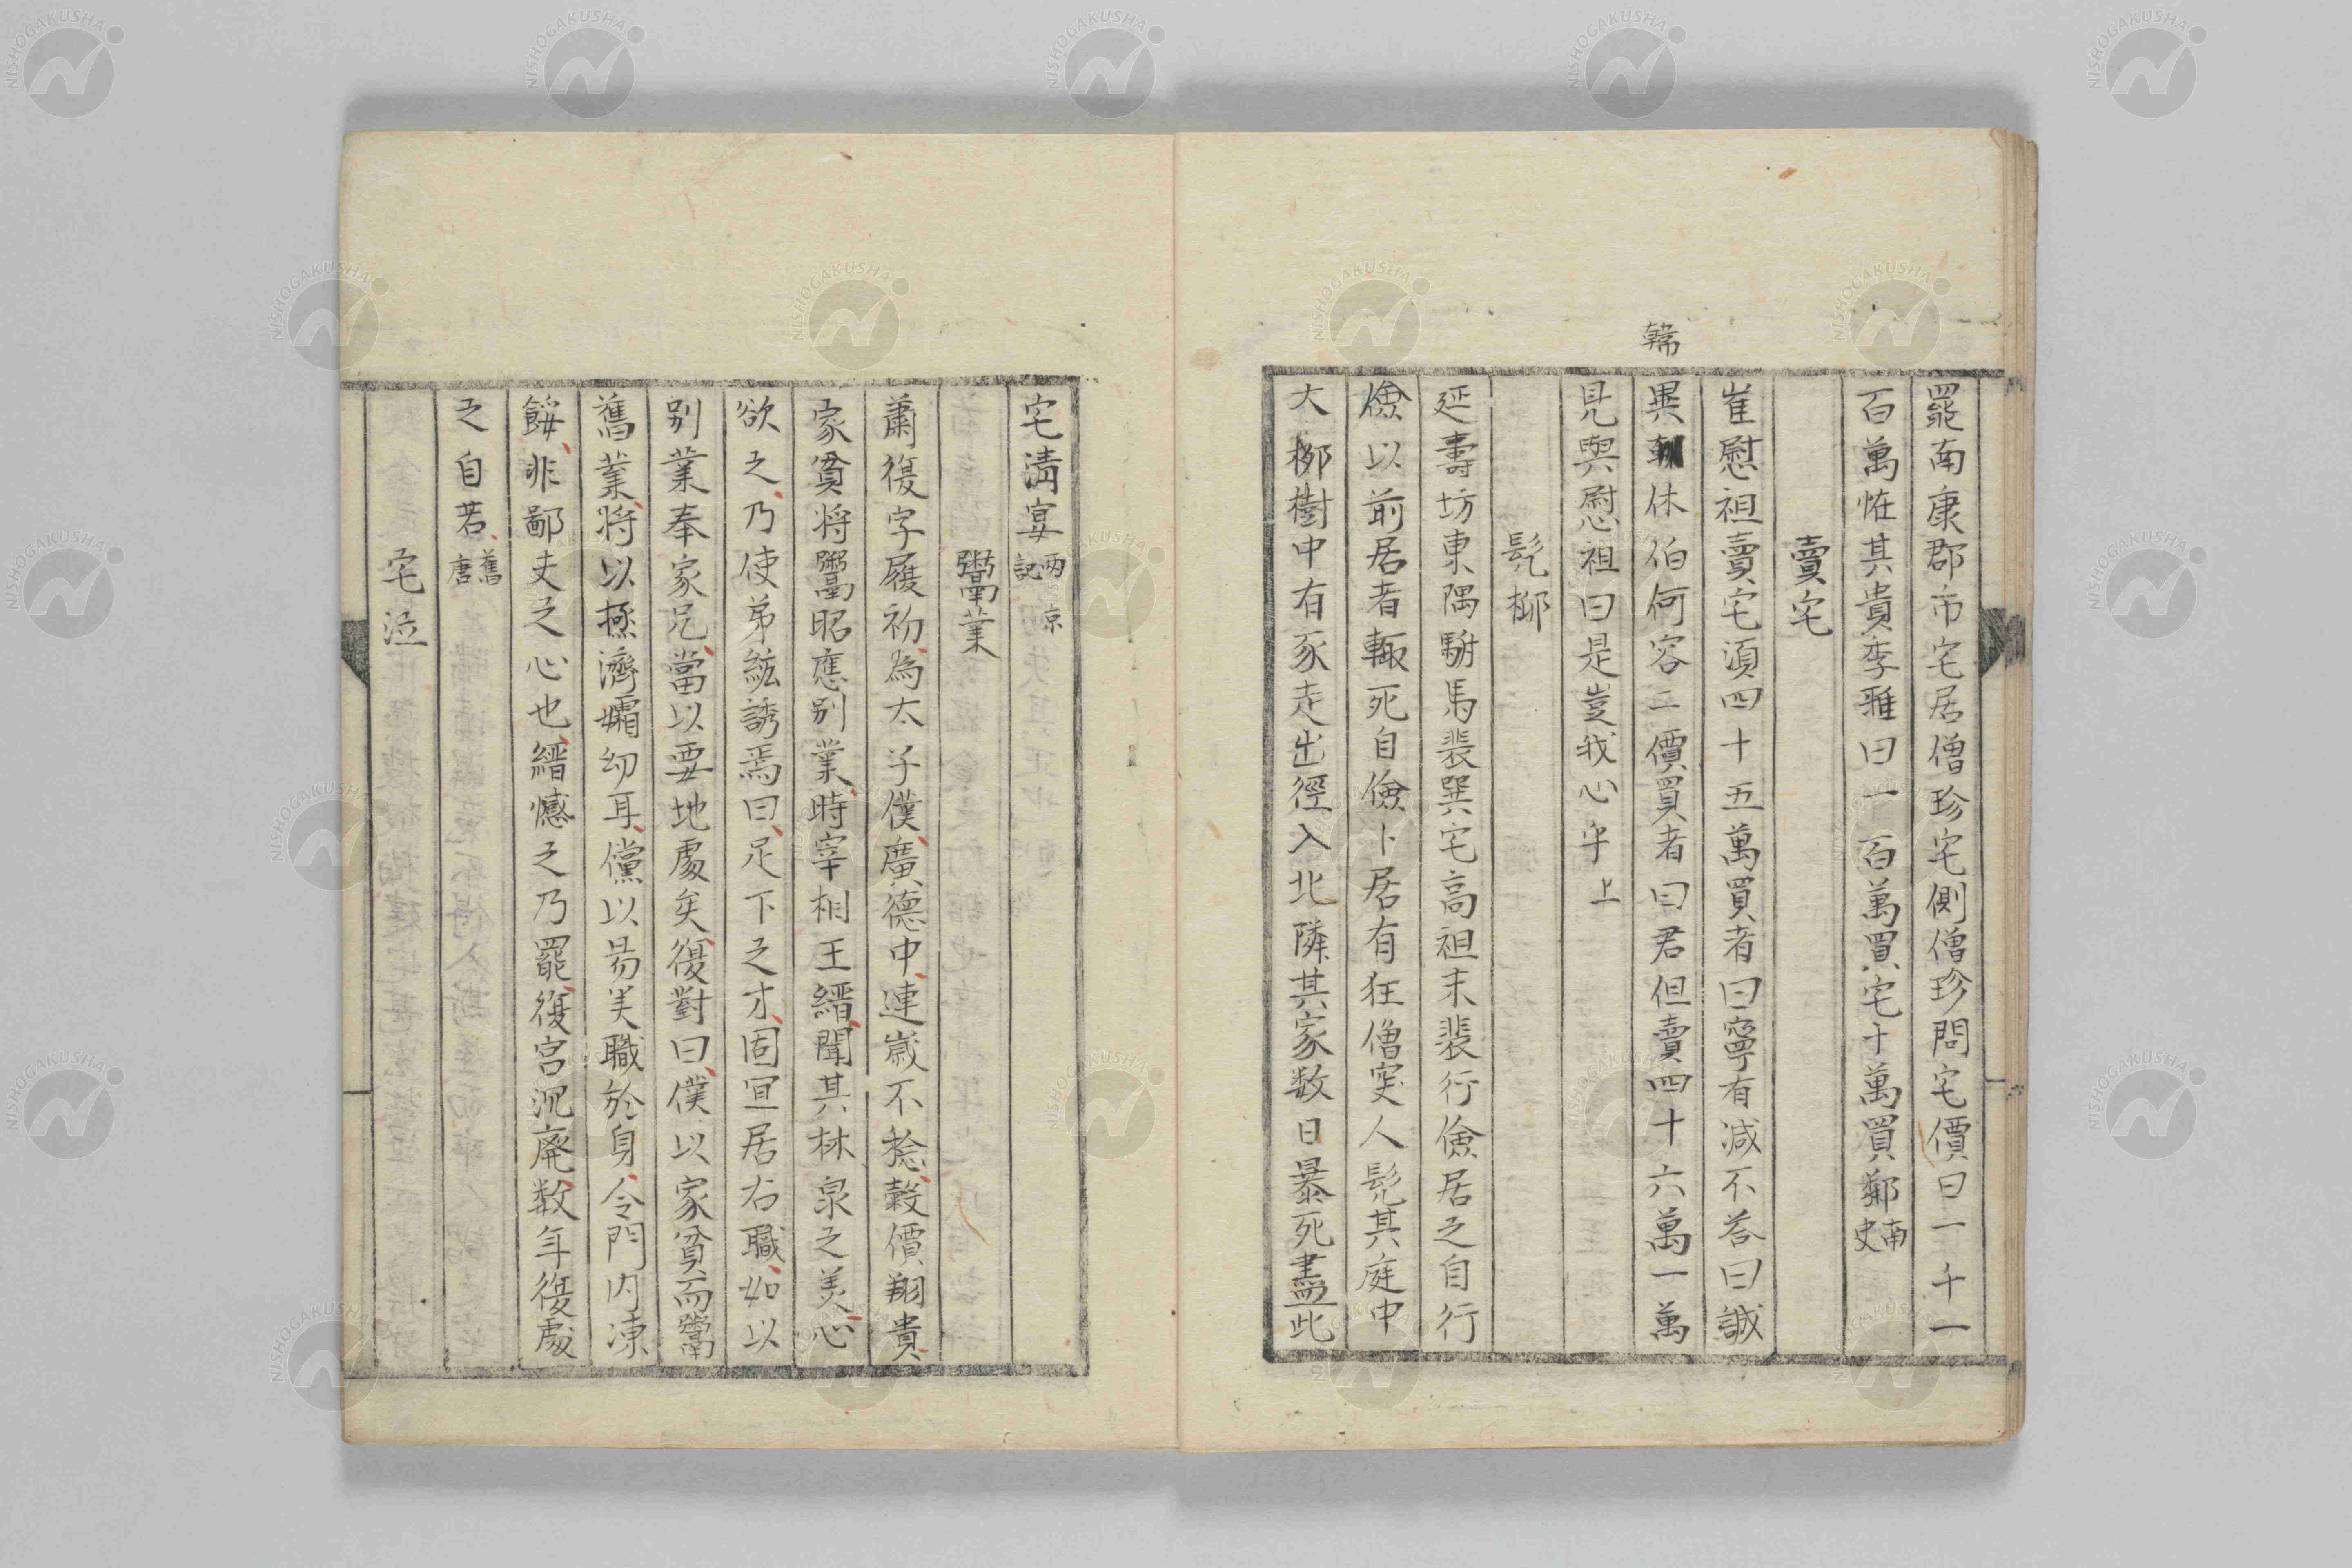 罷南康郡市宅居僧珍宅側僧珍問宅價曰一千一
百萬怪其貴季雅曰一百萬買宅千萬買鄰南史
賣宅
崔慰祖賣宅須四十五萬買者曰寧有減不荅曰誠
韓
異休伯何容二價買者曰君但賣四十六萬一萬
見與慰祖曰是豈我心乎上
髡柳
延壽坊東隅駙馬裴巽宅高祖末裴行儉居之自行
儉以前居者輒死自儉卜居有狂僧突人髡其庭中
大柳樹中有豕走出徑入北隣其家数日暴死盡此
宅清宴兩京記
鬻業
蕭復字履初為太子僕廣德中連歲不稔穀價翔貴
家貧將鬻昭應别業時宰相王縉聞其林泉之美心
欲之乃使弟紘誘焉曰足下之才固宜居右職如以
别業奉家兄當以要地處矣復對曰僕以家貧而鬻
舊業將以拯濟孀幼耳儻以易美職於身令門内凍
餒非鄙夫之心也縉憾之乃罷復官沉廃数年復處
之自若舊唐
宅泣